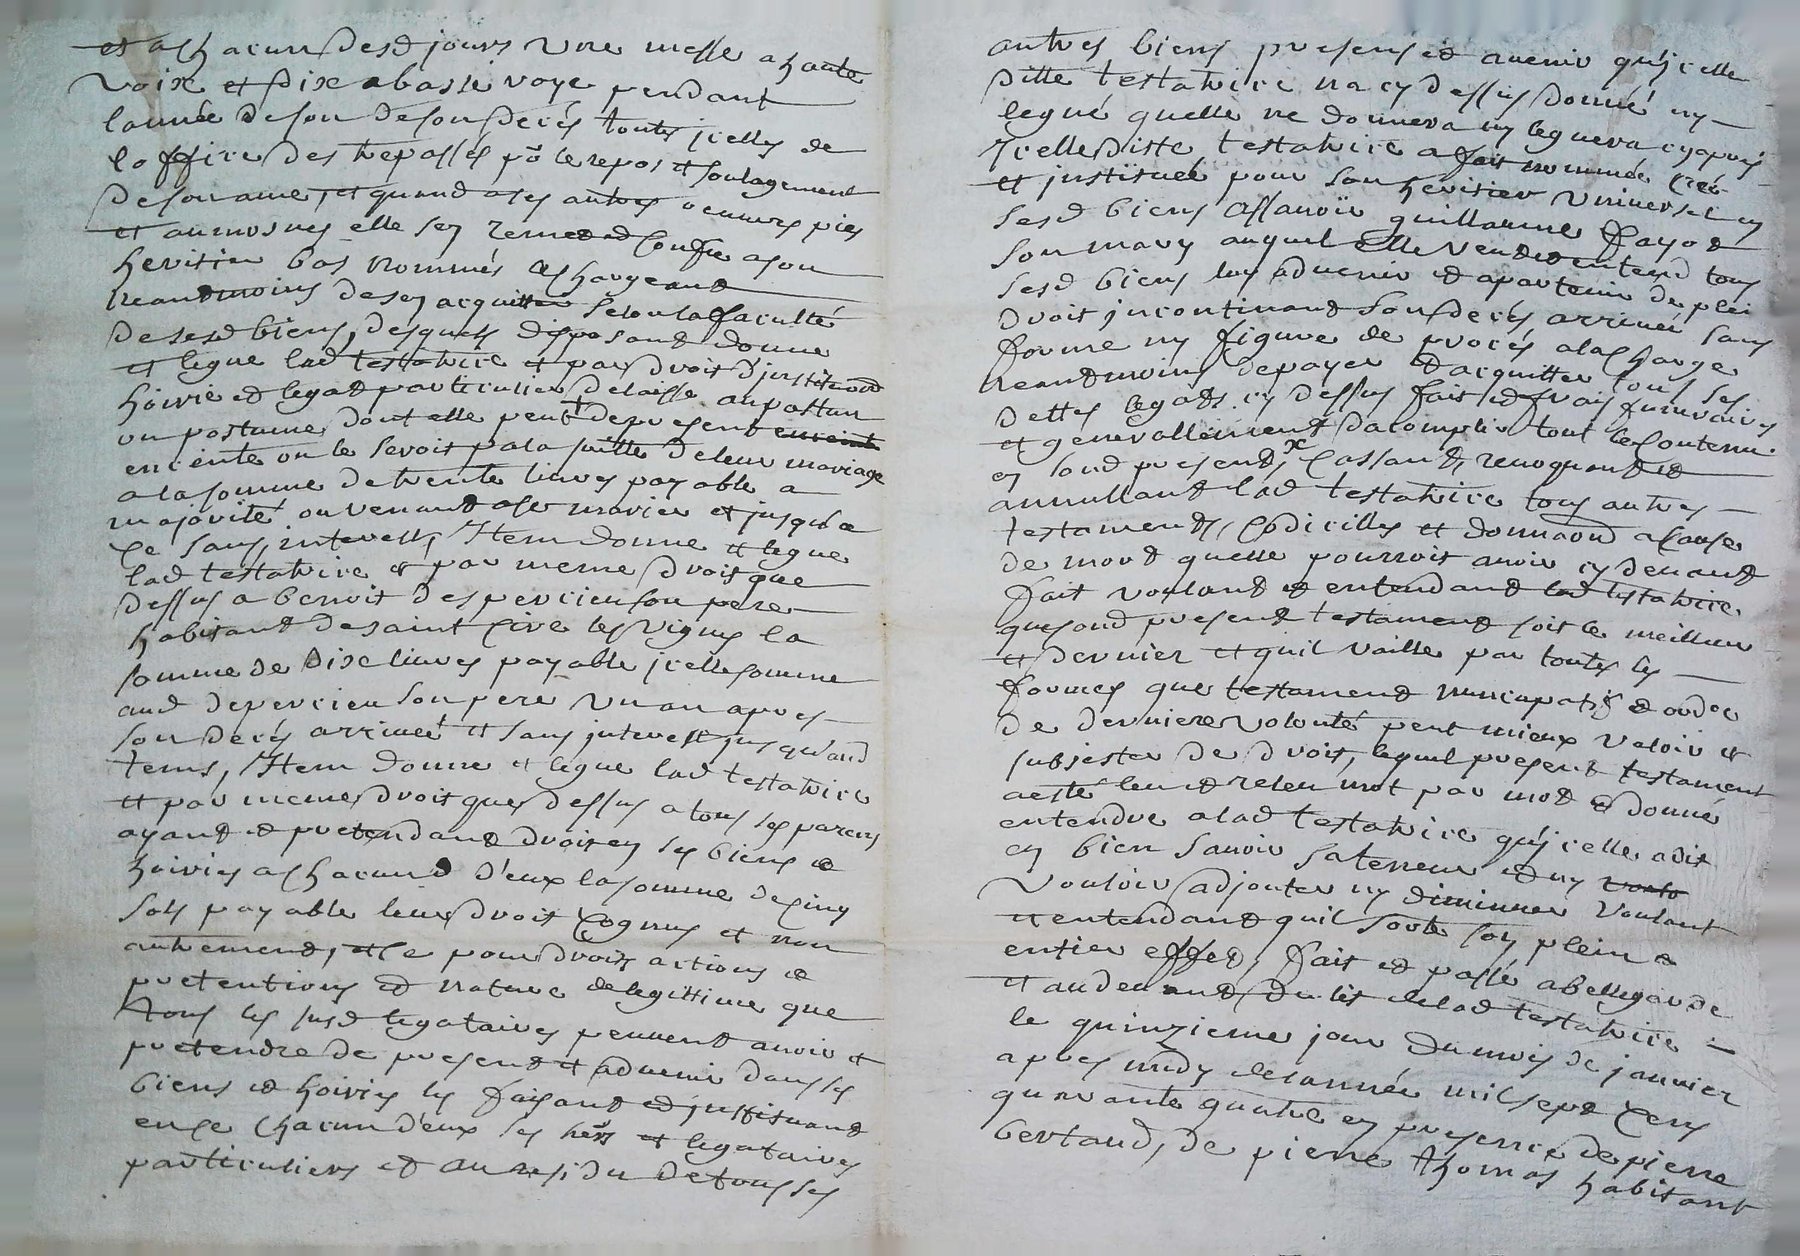 et a chacun desd jours une messe a haute
voix et dix a basse voye pendant
lannée de son de son decés toutes jcelles de
loffice des trepassés pr le repos et soulagement
de son ame, et quand a ses autres oeuvres pies
et aumosnes elle sen remet et confie a son
heritier bas nommés a chargeant
neandmoins de sen acquitter selon la faculté
de sesd biens, desquels disposant donne
et legue lad testatrice et par droit djnstitution
hoirie et legat particulier delaisse au postun
ou postume dont elle peut de present enceint
enceinte ou le seroit pa la suitte de leur mariage
a la somme de trente livres payable a
majorité ou venant a se marier et jusqu'a
ce sans interests, Item donne et legue
lad testatrice et par meme droit que
dessus a benoit despercieu son pere
habitant de saint Cire les vignes la
somme de dix livres payable jcelle somme
aud depercieu son pere un an apres
son decés arrivée et sans jnterest jusqu'aud
tems, Item donne et legue lad testatrice
et par meme droit que dessus a tous ses parens
ayant et pretendant droit en ses biens et
hoiries a chacun d'eux la somme de cinq
sols payable leur droit cognus et non
autrement, et ce pour droits actions et
pretentions et nature de legittime que
tous les susd legataires peuvent avoir et
pretendre de present et advenir dans ses
biens et hoiries les faisant et jnstituant
en ce chacun d'eux ses hers et legataires
particuliers et au residu de tous ses
autres biens presens et avenir qu'jcelle
ditte testatrice na cy dessus donné ny
legué quelle ne donnera ny leguera cy apres
Jcelle ditte testatrice a fait nommée créé
et jnstituée pour son heritier universel en
sesd biens assavoir guillaume fayot
son mary auquel elle veut et entend tous
sesd biens luy advenir et apartenir de plein
droit jncontinant son decés arrivée sans
forme ny figure de procés a la charge
neandmoins de payer et acquitter tous ses
dettes legats cy dessus fait et frais funeraires
et generallement dacomplir tout le contenu
en soud present, x Cassant, revoquant et
annullant lad testatrice tous autres
testaments, codicilles et donnaon a cause
de mort quelle pourroit avoir cy devant
fait voulant et entendant lad testatrice
que soud present testament soit le meilleur
et dernier et quil vaille par toutes les
formes que testament nuncupatif et ordre
de derniere volonté peut mieux valoir et
subsister de droit, lequel present testament
a esté leu et releu mot par mot et donné
entendre a lad testatrice qu'jcelle a dit
en bien savoir sa teneur et ny voulo
vouloir adjouter ny diminuer voulant
et entendant quil sorte son plein et
entier effet, fait et passé a bellegarde
et au devant du lit de lad testatrice
le quinzieme jour du mois de janvier
apres midy de lannée mil sept cens
quarante quatre en presence de pierre
bertaud, de pierre thomas habitant